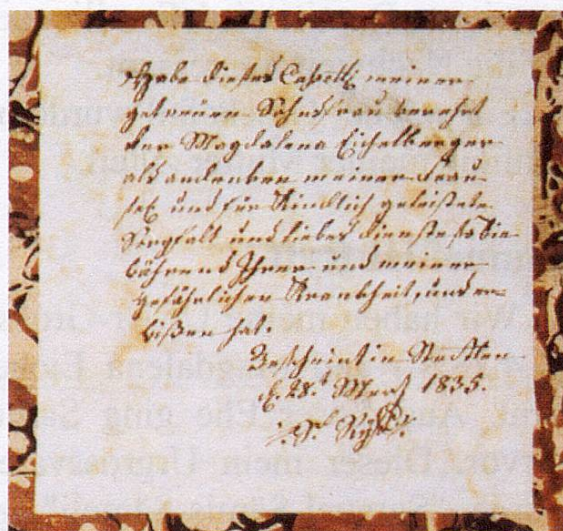 Habe dieses Castell meiner
getreuen Sohnsfrau verehrt
der Magdalena Eichelberger
als andenken meiner Frau
sel und für Kindlich geleistete
Sorgfalt und liebes dienste so Sie
während Ihrer und meiner
gefährlicher Krankheit, uns er-
wißen hat.
Bescheint in Stetten
d. 28.t Merz 1835.